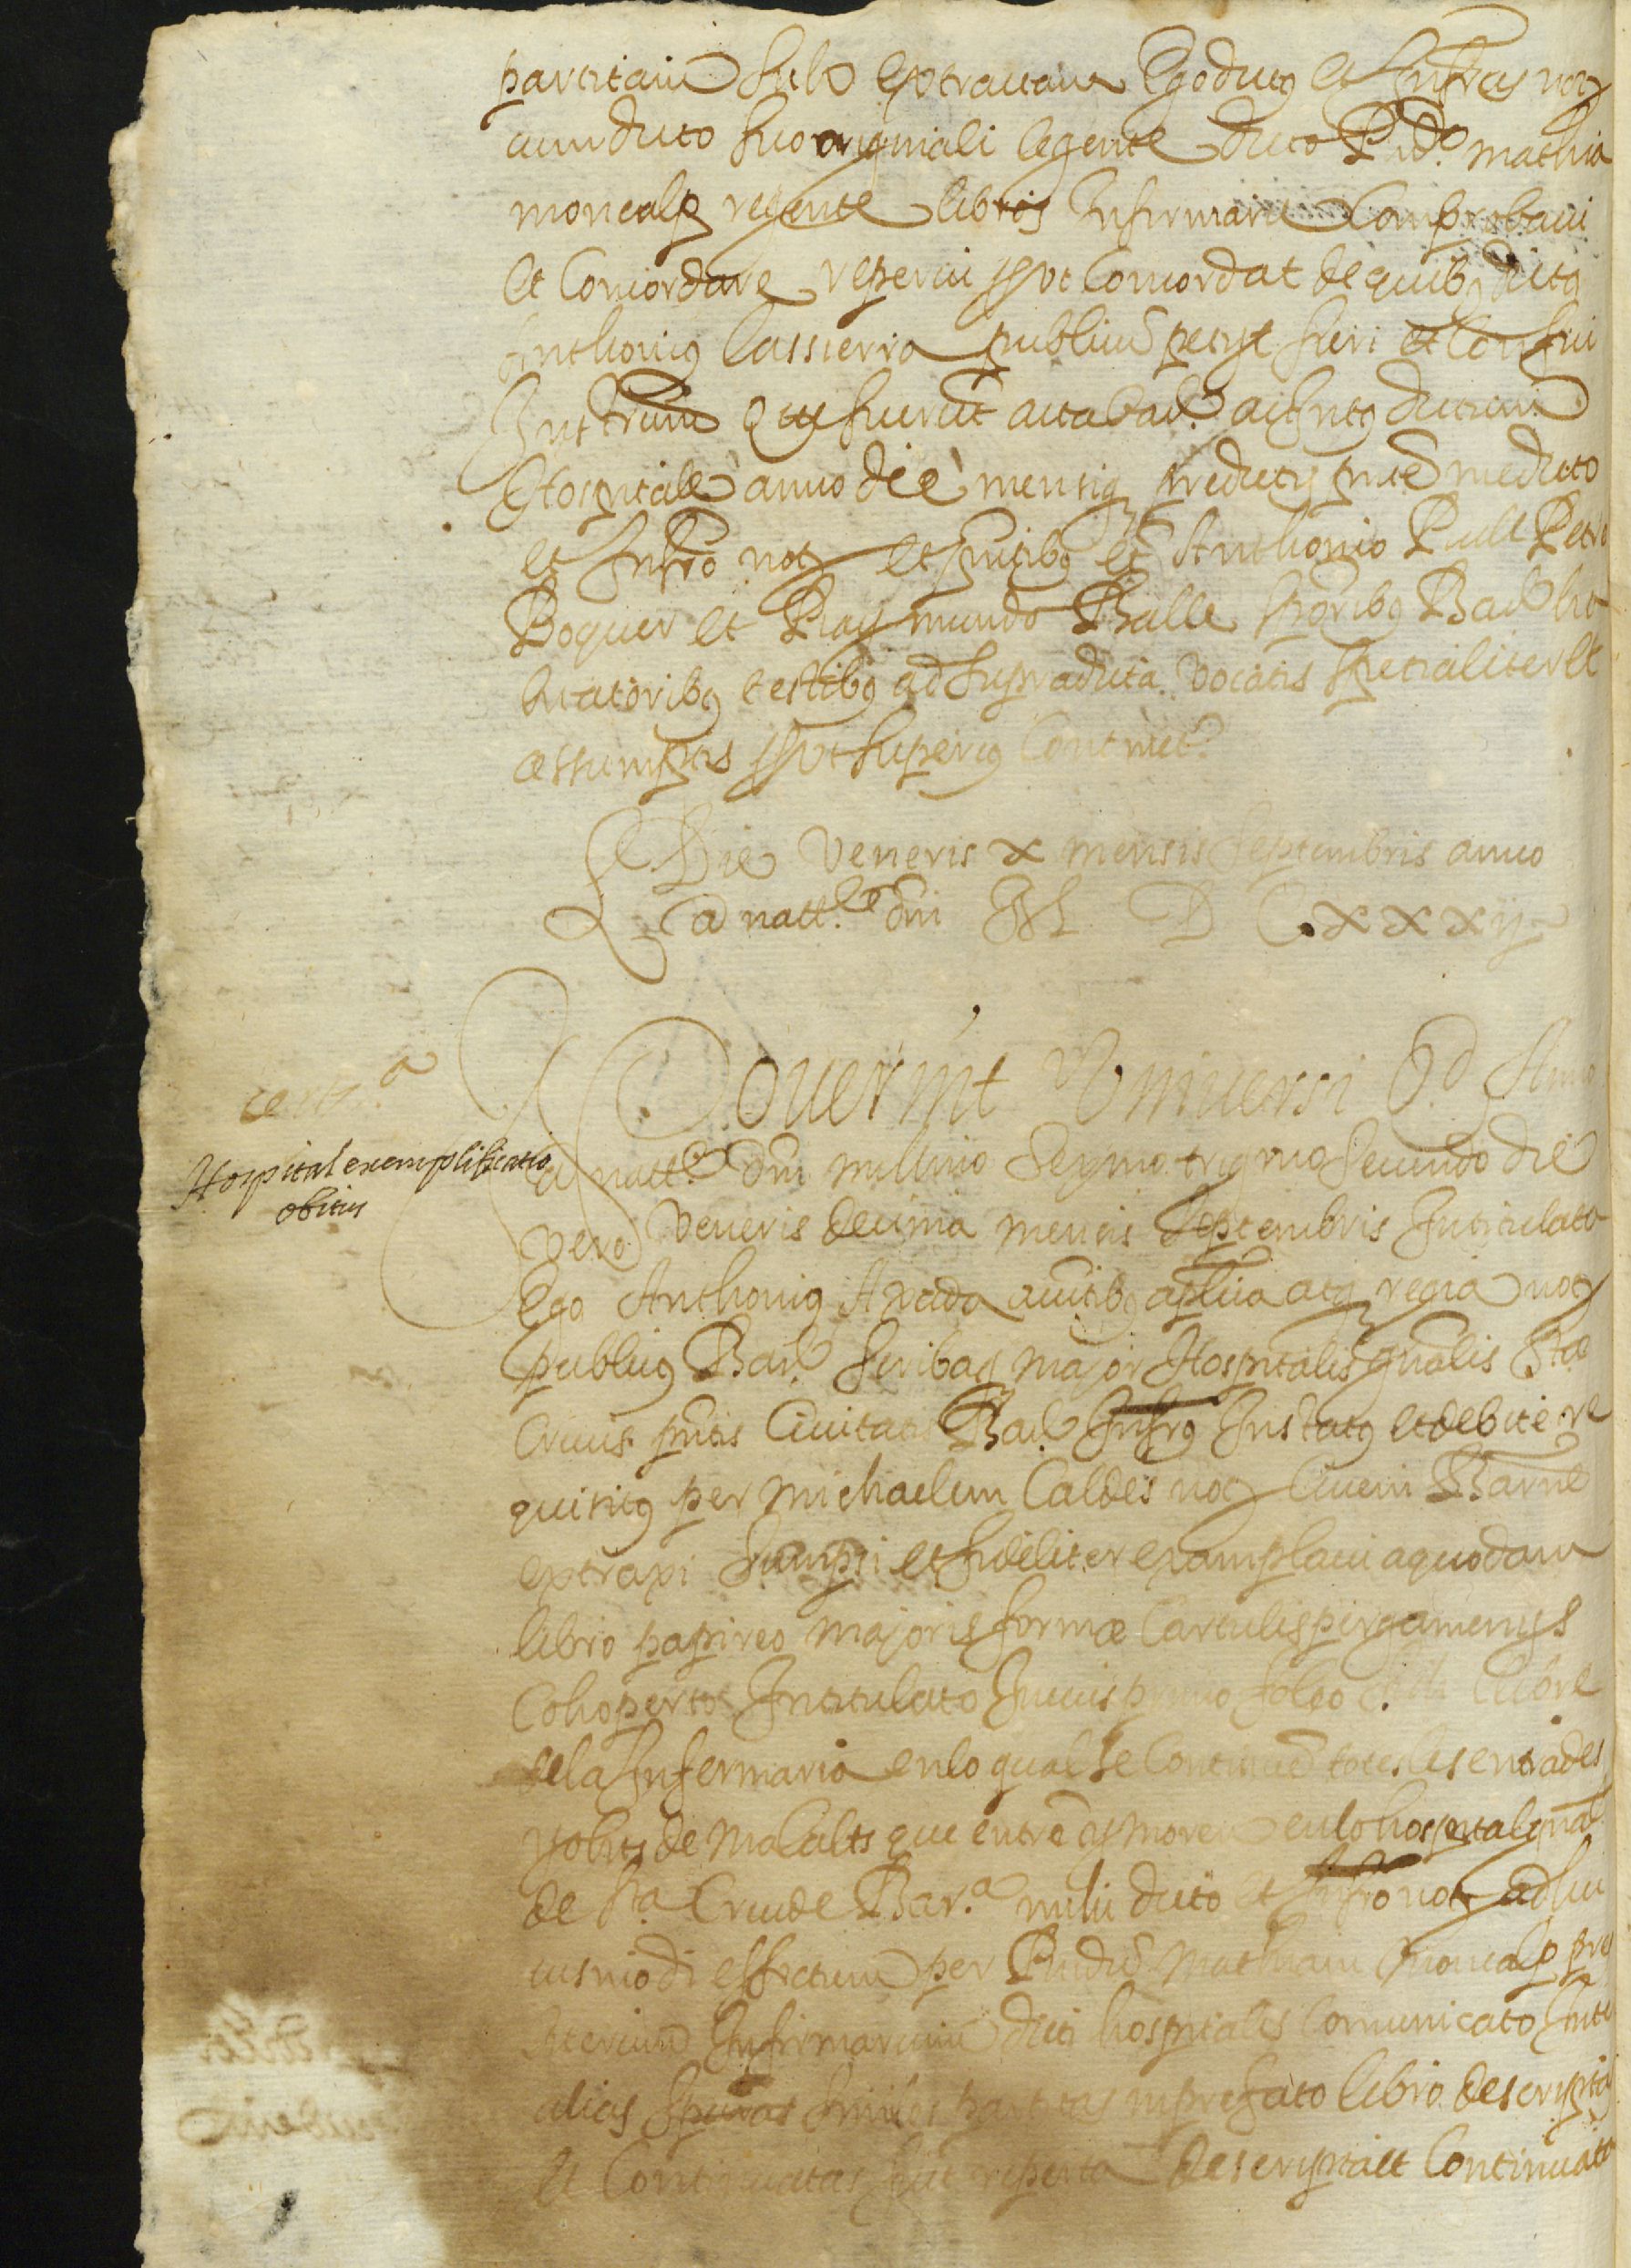 partitam sub extractam Ego dictus et Infrus not
cum dicto suo originali legente dicto Rndo Mathia
moncalp regente libros Infirmarie Comprobavi
et Concordare reperui sic ut Concordat de quibus dictus
Anthonius Cassierra publicum petiit fieri et Confici
Inst.rum Que fuerunt acta bare ac Intus dictum
Hospitale anno die mensisque predictis pnte me dicto
et Infro not et pntibus et Anthonio Petro
Boquer et Raymundo Balle sponibus Bare ha
bitatoribus testibus ad supradicta vocatis spetialiter et
assumptis sic ut superius Continet
Die Veneris x mensis Septembris anno
a natt.e dni M D C xxxij
Noverint Universi Qd Anno
certa
Hospital exemplificatio
obitus
a natt.e dni millmo Sexmo trigmo secundo die
vero Veneris decima mensis Septembris Intitulato
Ego Anthonius Axada auctibus aplica atq regia not
publicus Bare scribaq major Hospitalis gnalis Stæ
Crucis pntis Civitatis Bare Infrus Instatus et debite re
quisitus per Michaelem Caldes not Civem Barne
extraxi sumpsi et fideliter examplavi a quodam
libro papireo majoris formæ Cartulis pirgamenys
Cohoperto Intitulato In eius primo foleo Llibre
de la Infermaria en lo qual se Continuen totes les entrades
y obits de Malalts que entren y moren en lo hospital gnal
de Sta Creu de Bar.a mihi dicto et Infro not ad hu
iusmodi effectum per Rndum Mathiam Moncalp pres
biterum Infirmarium dicti hospitalis Comunicato Inter
alias similes partitas in prefato libro descriptas
et Continuatas fuit reperta descripta et Continuata